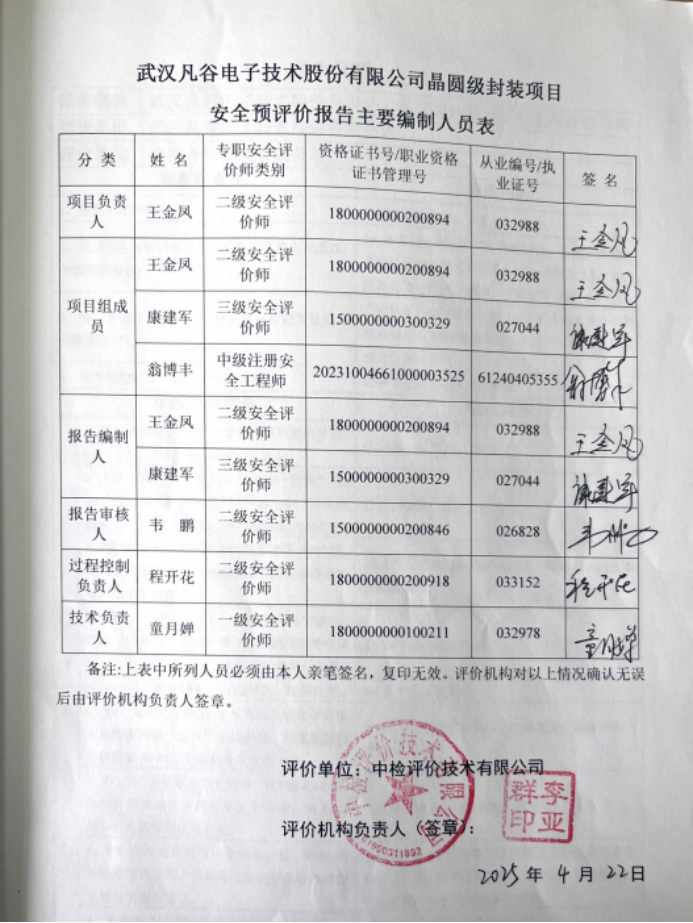 武汉凡谷电子技术股份有限公司晶圆级封装项目
安全预评价报告主要编制人员表
分 类 姓 名 专职安全评价师类别 资格证书号/职业资格证书管理号 从业编号/执业证号 签 名
项目负责人 王金凤 二级安全评价师 1800000000200894 032988 王金凤
项目组成员 王金凤 二级安全评价师 1800000000200894 032988 王金凤
康建军 三级安全评价师 1500000000300329 027044 康建军
翁博丰 中级注册安全工程师 20231004661000003525 61240405355 翁博丰
报告编制人 王金凤 二级安全评价师 1800000000200894 032988 王金凤
康建军 三级安全评价师 1500000000300329 027044 康建军
报告审核人 韦 鹏 二级安全评价师 1500000000200846 026828 韦鹏
过程控制负责人 程开花 二级安全评价师 1800000000200918 033152 程开花
技术负责人 童月婵 一级安全评价师 1800000000100211 032978 童月婵
备注:上表中所列人员必须由本人亲笔签名，复印无效。评价机构对以上情况确认无误
后由评价机构负责人签章。
评价单位：中检评价技术有限公司
评价机构负责人（签章）：
中检评价技术有限公司
李亚群印
2025年4月22日